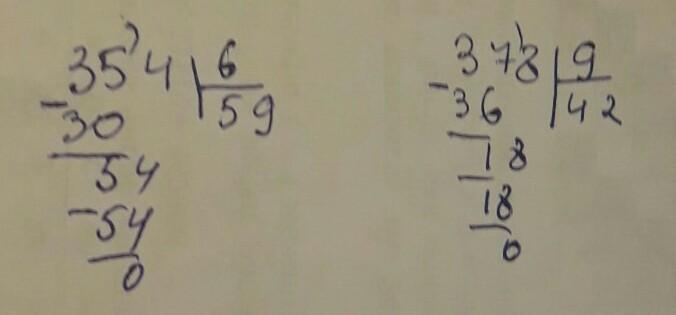 354 6
-30 59
54
-54
0
378 9
-36 42
18
-18
0